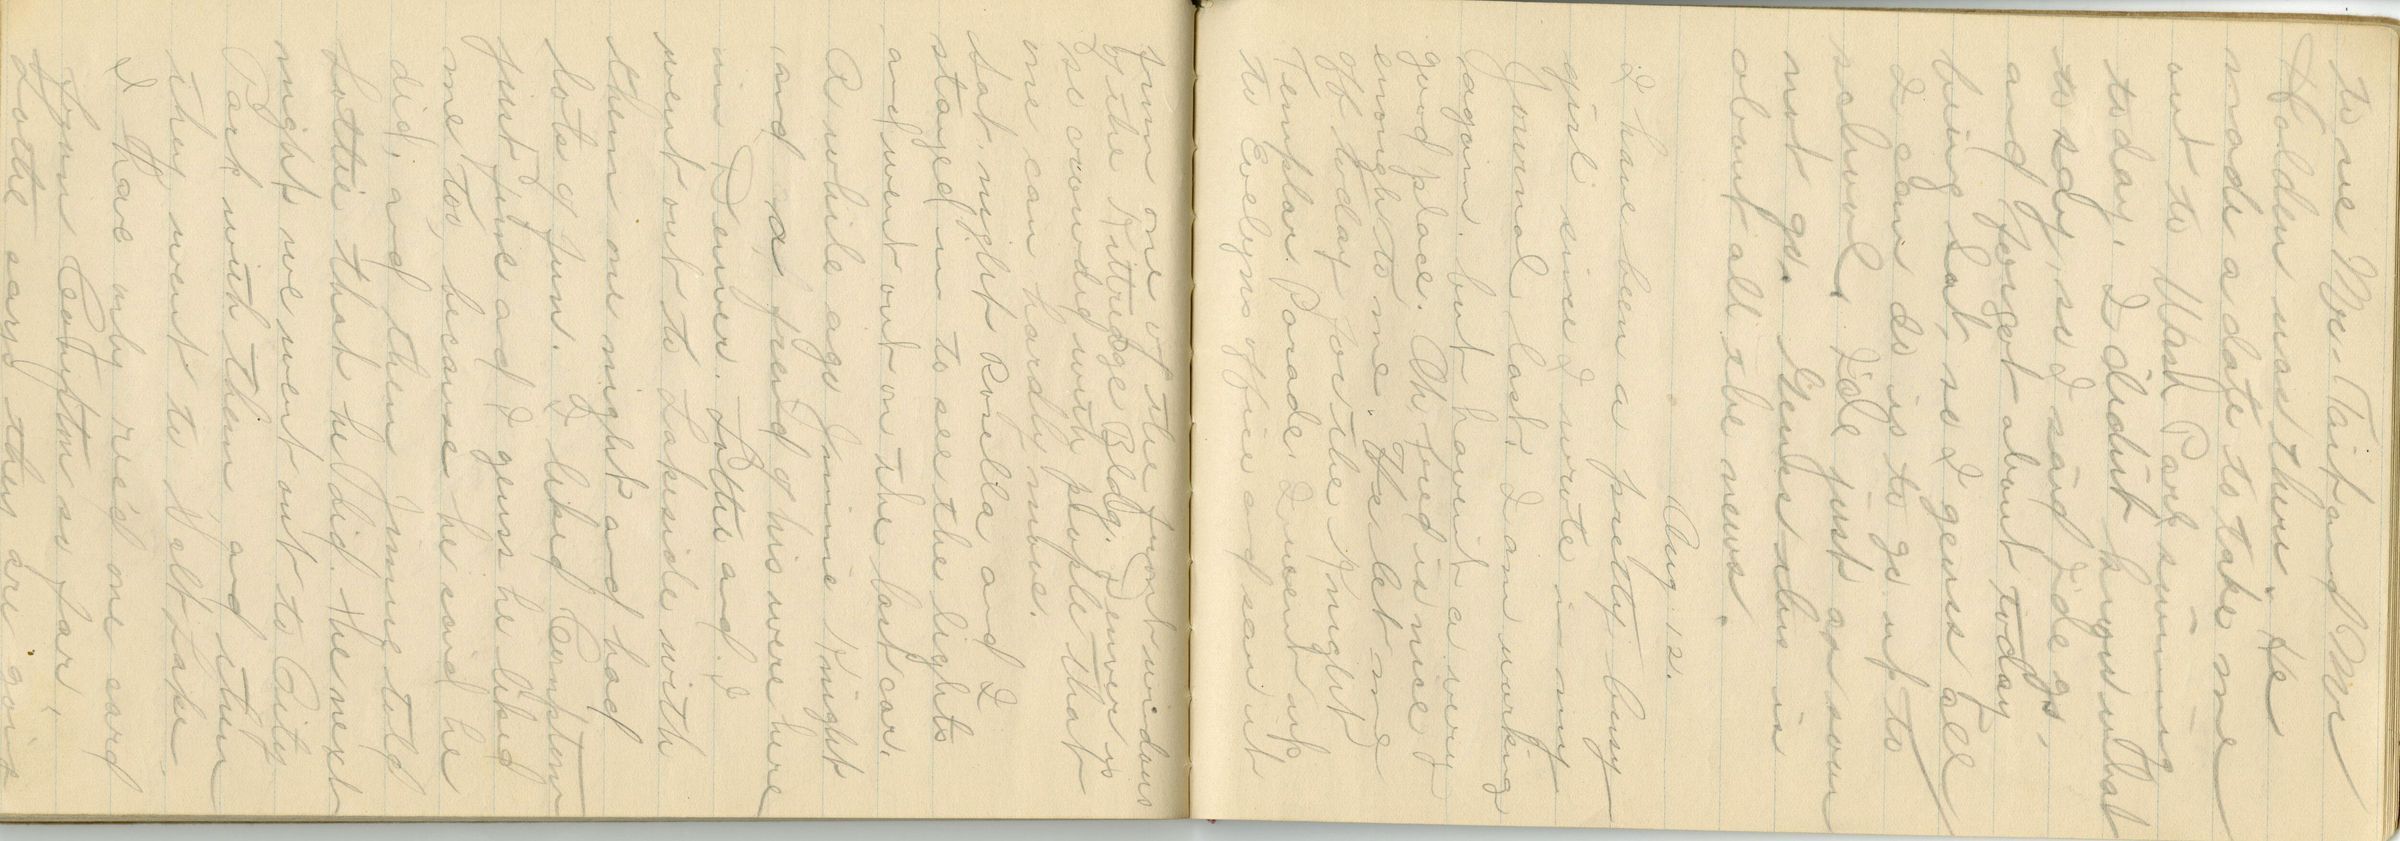 to see Mr. Tait and Mr
Holden was there. He
made a date to take me
out to Wash Park swimming
today. I didn't know what
to say, so I said I'de go,
and forgot about today
being Sat, so I guess all
I can do is to go up to
school. I'de just as soon
not go. Guess this is
about all the news.
Aug. 12.
I have been a pretty busy
girl since I wrote in my
Journal last. I am working
again. but havent a very
good place. Oh Fred is nice
enough to me. He let me
off today for the Knight
Templar Parade. I went up
to Evelyns office and saw it
from one of the front windows
of the Kittredge Bldg. Denver is
so crowded with people that
one can hardly move.
Sat. night Rosella and I
stayed in to see the lights
and went out on the last car.
Awhile ago Jimmie Knight
and a friend of his were here
in Denver. Lottie and I
went out to Lakeside with
them one night and had
lots of fun. I liked Compton
just fine and I guess he liked
me too, because he said he
did, and then Jimmie told
Lottie that he did. The next
night we went out to City
Park with them and then
they went to Salt Lake.
I have only rec'd one card
from Compton so far,
Lottie says they are going